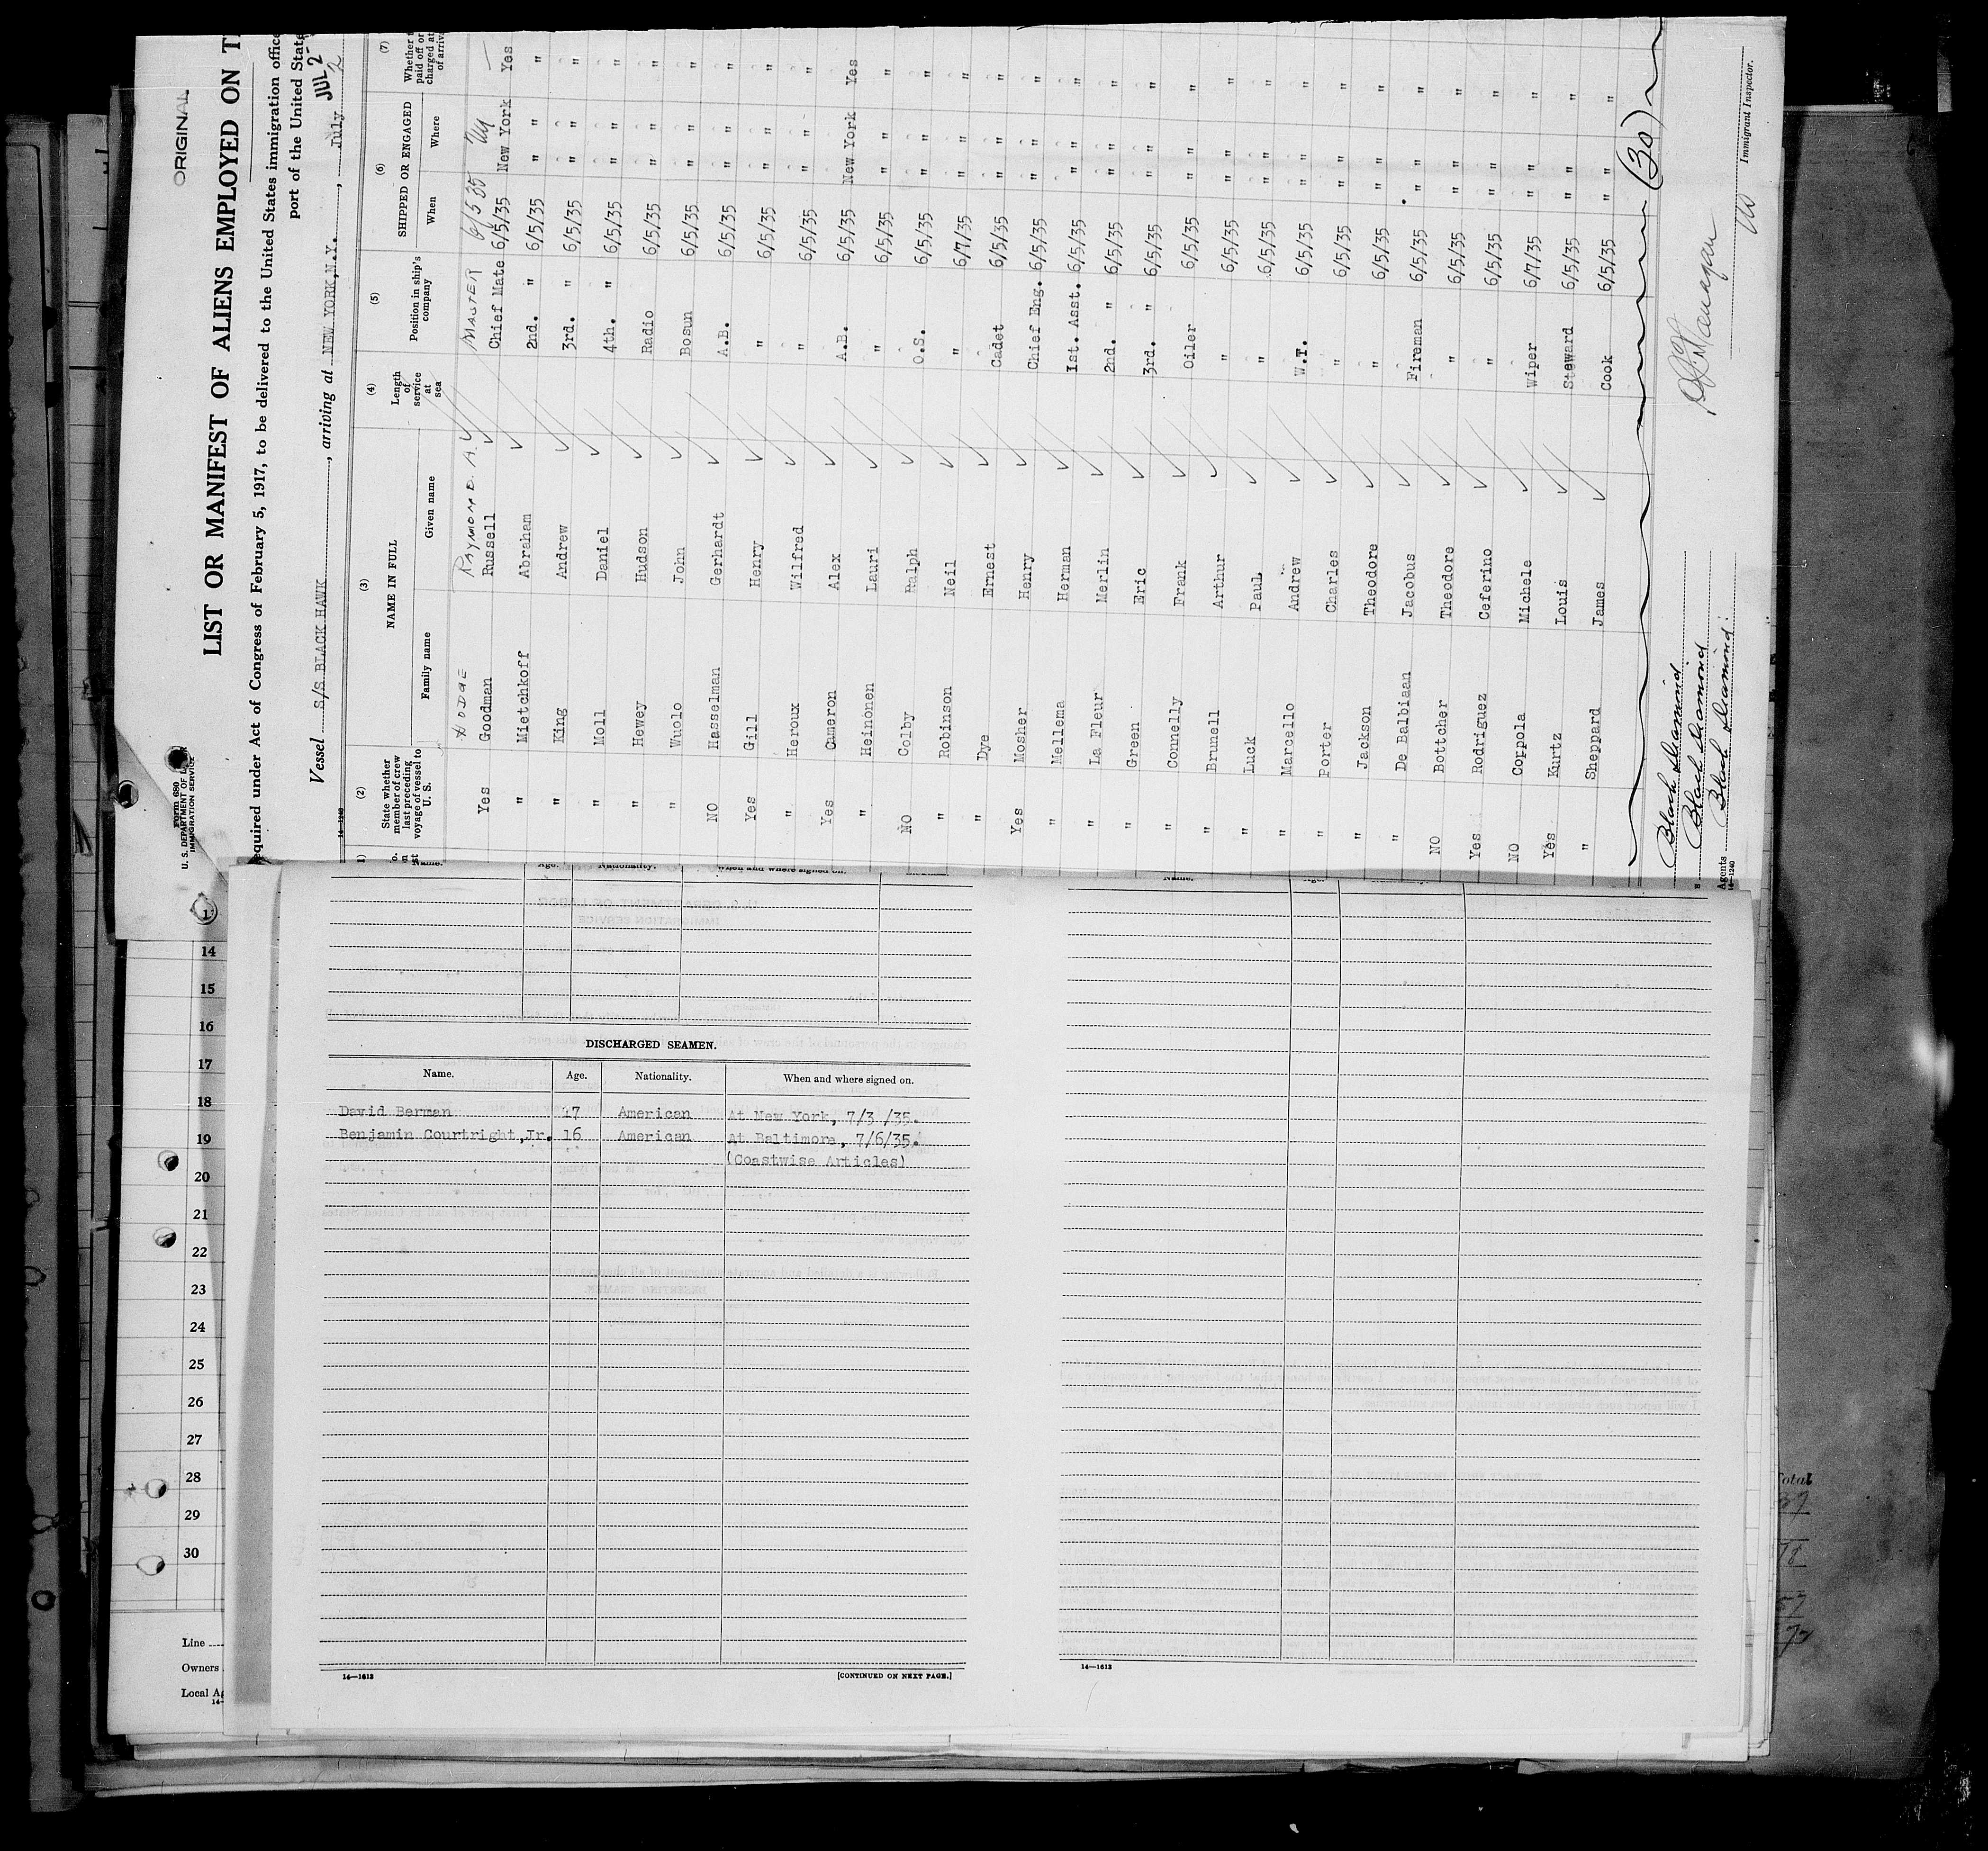 ORIGINAL
Form 680
U. S. DEPARTMENT OF LABOR
IMMIGRATION SERVICE
LIST OR MANIFEST OF ALIENS EMPLOYED ON T
equired under Act of Congress of February 5, 1917, to be delivered to the United States immigration office
port of the United State
JUL 2
Vessel S/S BLACK HAWK, arriving at NEW YORK, N.Y., July 2
14-1240
(2) (3) (4) (5) (6) (7)
State whether member of crew last preceding voyage of vessel to U. S. NAME IN FULL Length of service at sea Position in ship's company SHIPPED OR ENGAGED Whether paid off or charged at of arriva
Family name Given name When Where
HODGE RAYMOND A. MASTER 6/5 35 NY —
Yes Goodman Russell Chief Mate 6/5/35 New York Yes
" Mietchkoff Abraham 2nd. " 6/5/35 " " "
" King Andrew 3rd. " 6/5/35 " " "
" Moll Daniel 4th. " 6/5/35 " " "
" Hewey Hudson Radio 6/5/35 " " "
" Wuolo John Bosun 6/5/35 " " "
NO Hasselman Gerhardt A.B. 6/5/35 " " "
Yes Gill Henry " 6/5/35 " " "
" Heroux Wilfred " 6/5/35 " " "
Yes Cameron Alex A.B. 6/5/35 New York Yes
" Heinonen Lauri " 6/5/35 " " "
NO Colby Ralph O.S. 6/5/35 " " "
" Robinson Neil " 6/7/35 " " "
" Dye Ernest Cadet 6/5/35 " " "
Yes Mosher Henry Chief Eng. 6/5/35 " " "
" Mellema Herman 1st. Asst. 6/5/35 " " "
" La Fleur Merlin 2nd. " 6/5/35 " " "
" Green Eric 3rd. " 6/5/35 " " "
" Connelly Frank Oiler 6/5/35 " " "
" Brunell Arthur " 6/5/35 " " "
" Luck Paul " 6/5/35 " " "
" Marcello Andrew W.T. 6/5/35 " " "
" Porter Charles " 6/5/35 " " "
" Jackson Theodore " 6/5/35 " " "
" De Balbiaan Jacobus Fireman 6/5/35 " " "
NO Bottcher Theodore " 6/5/35 " " "
Yes Rodriguez Ceferino " 6/5/35 " " "
NO Coppola Michele Wiper 6/7/35 " " "
Yes Kurtz Louis Steward 6/5/35 " " "
" Sheppard James Cook 6/5/35 " " "
(30)
Black Diamond
Black Diamond
Agents Black Diamond
14-1240
Immigrant Inspector.
Name. Age. Nationality. When and where signed on.
Name.
DISCHARGED SEAMEN.
Name. Age. Nationality. When and where signed on.
David Berman 17 American At New York, 7/3 /35.
Benjamin Courtright,Jr. 16 American At Baltimore, 7/6/35.
(Coastwise Articles)
14—1613
[CONTINUED ON NEXT PAGE.]
14—1613
14
15
16
17
18
19
20
21
22
23
24
25
26
27
28
29
30
Line
Owners
Local Ag
Total